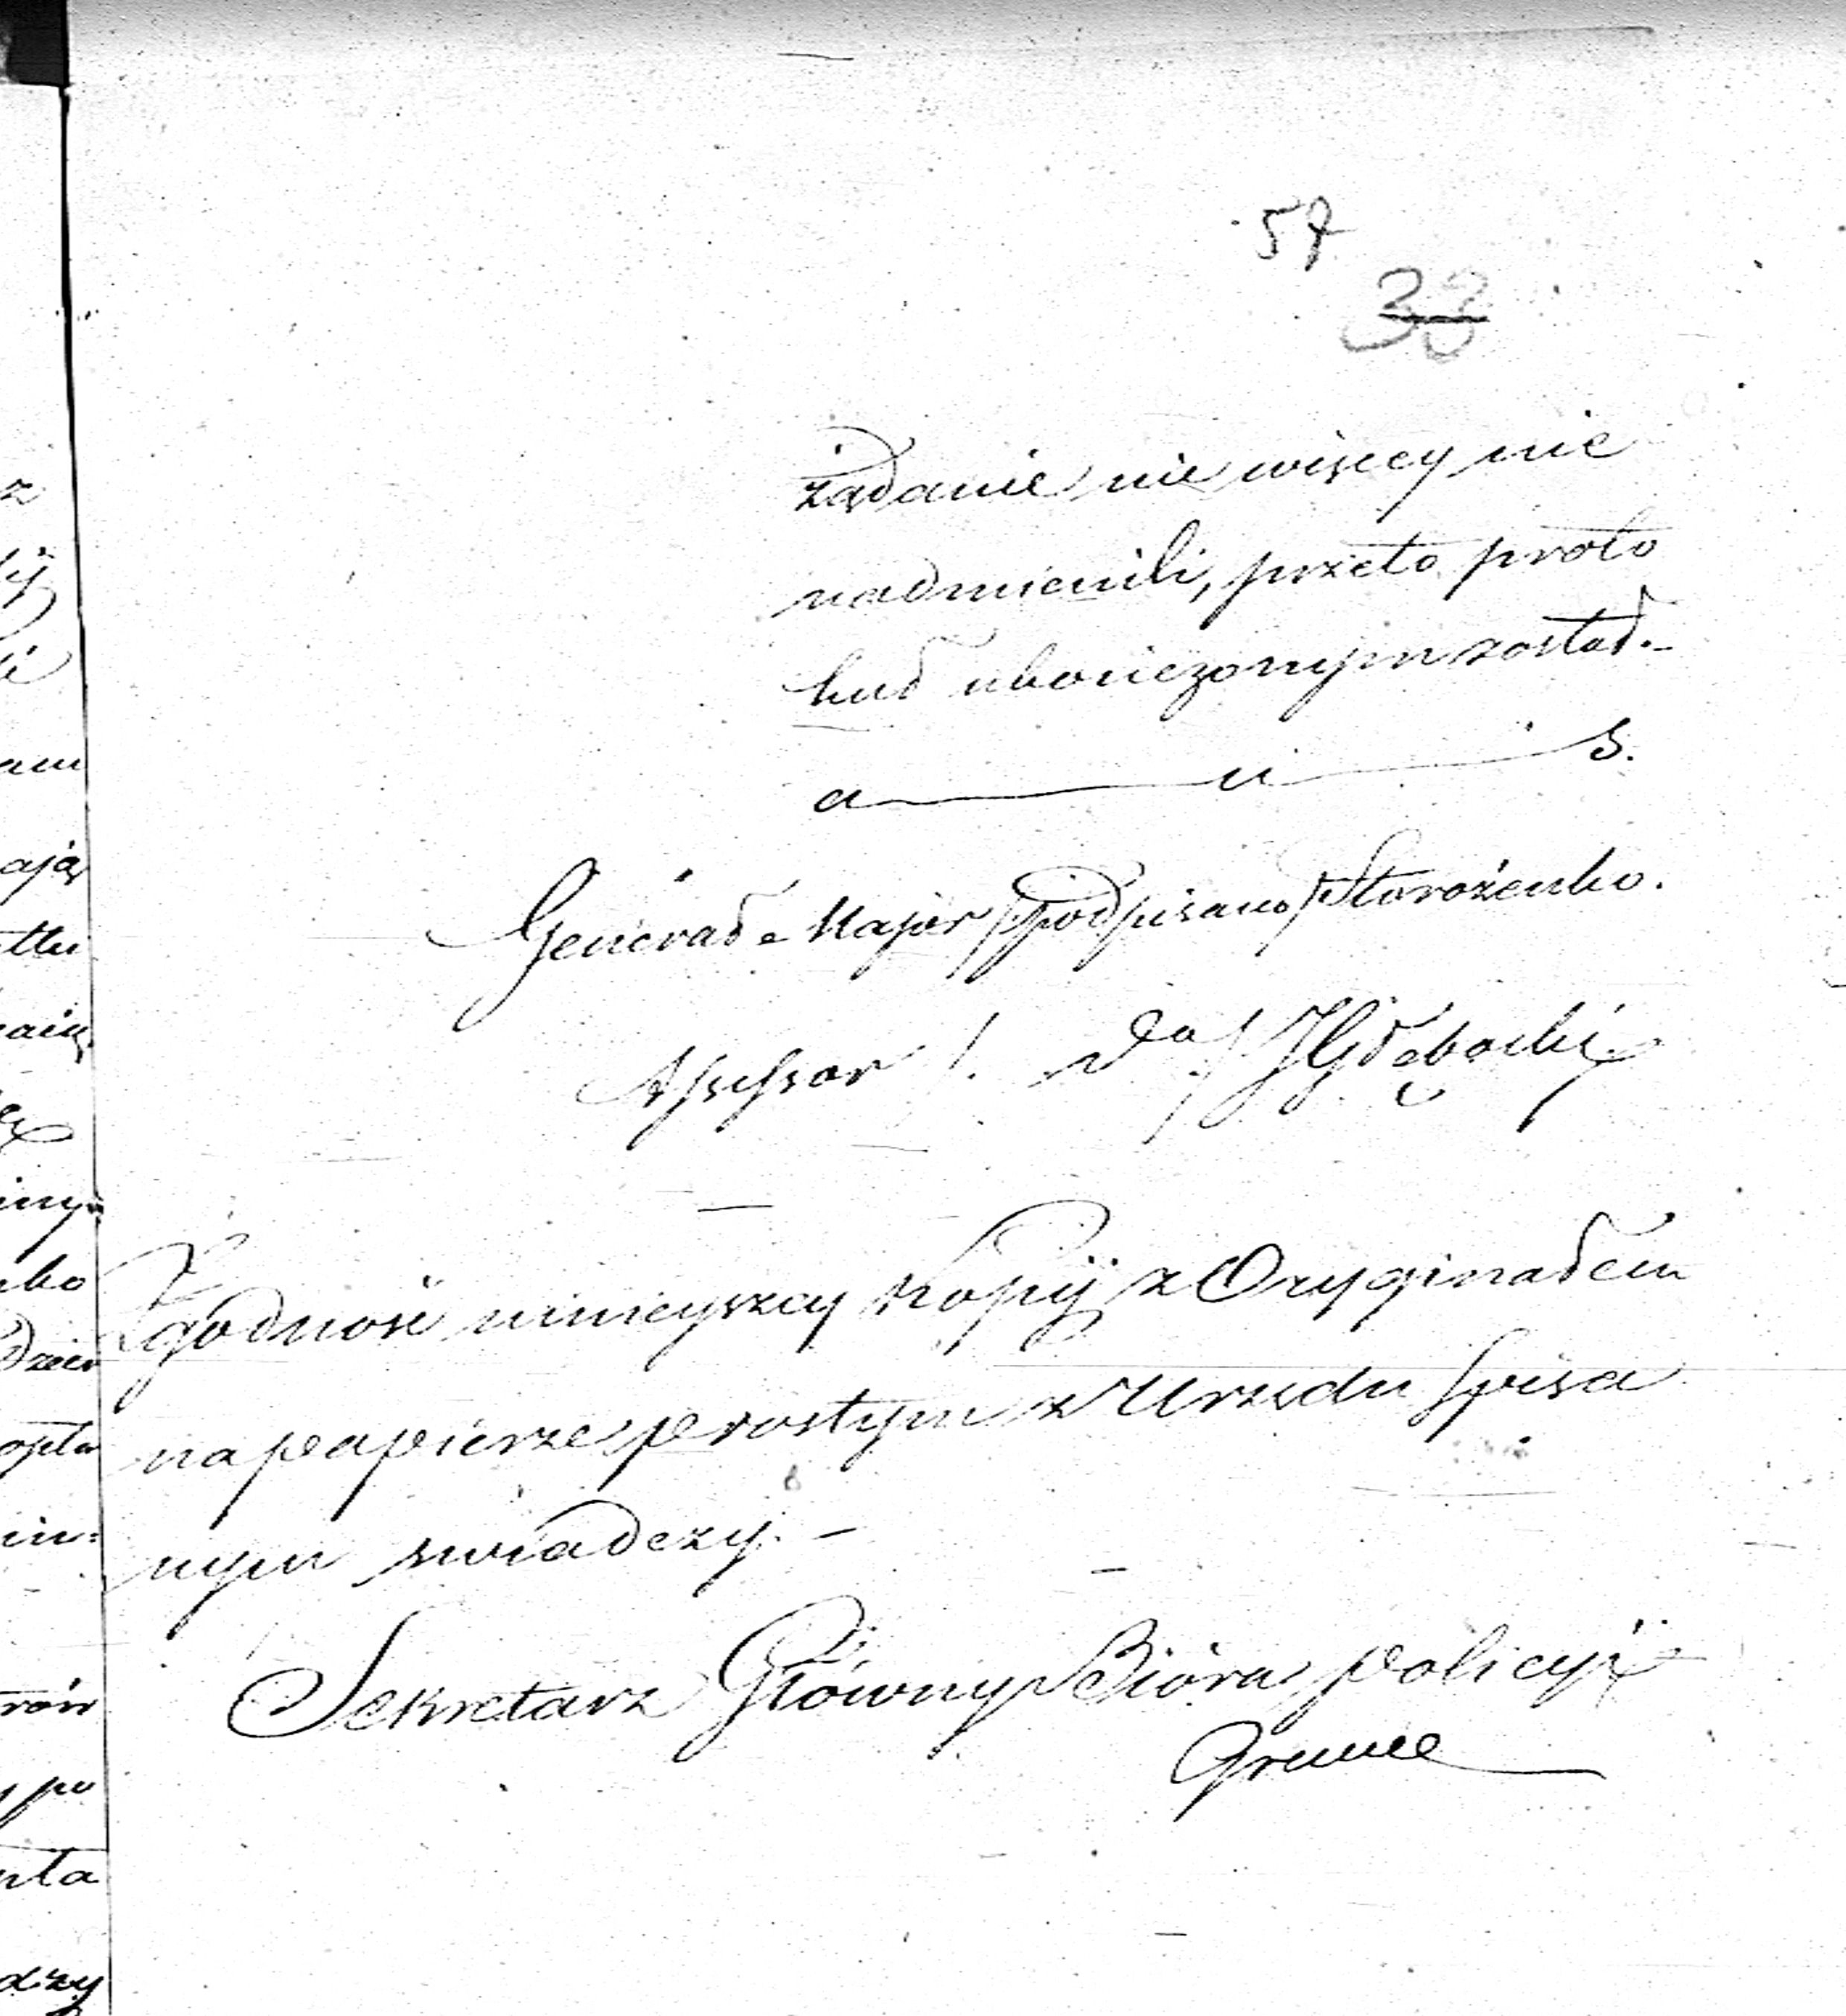 57
33
żądanie nie więcey nie
nadmienili, przeto proto
kuł ukończonym został.-
a u s.
Generał Major /:podpisano:/ Storożenko.
Assessor /. do /. J Głębocki
Zgodność ninieyszey Kopij z Oryginałem
na papierze prostym z Urzędu spisa
nym swiadczy. -
Sekretarz Główny Bióra Policyi